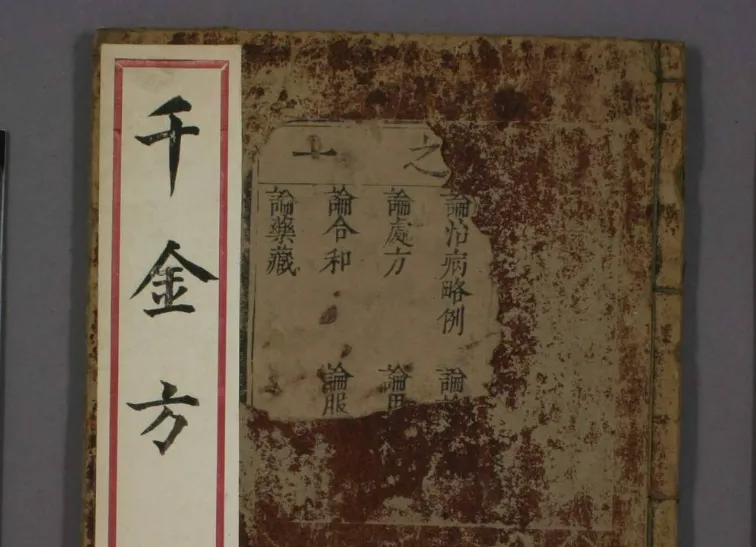 千金方
之
論治病略例 論
論處方 論
論合和 論服
論藥藏